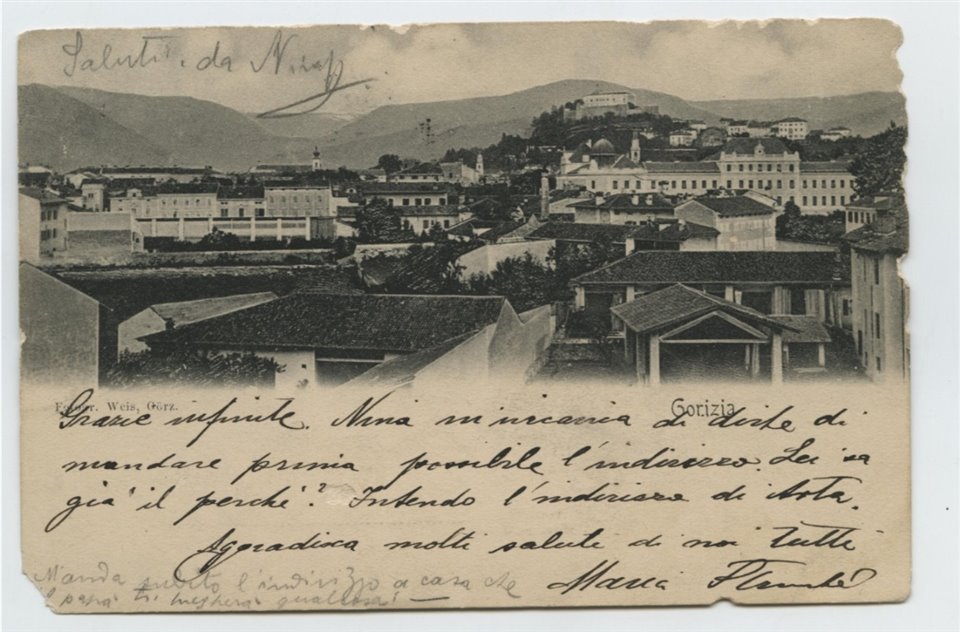 Saluti da Nina
Fotogr. Weis, Görz.
Gorizia
Grazie infinite. Nina m'incarica di dirle di
mandare prima possibile l'indirizzo. Lei sa
già il perché? Intendo l'indirizzo di Arta.
Aggradisca molti saluti di noi tutti
Maria
Manda subito l'indirizzo a casa che
il papà ti